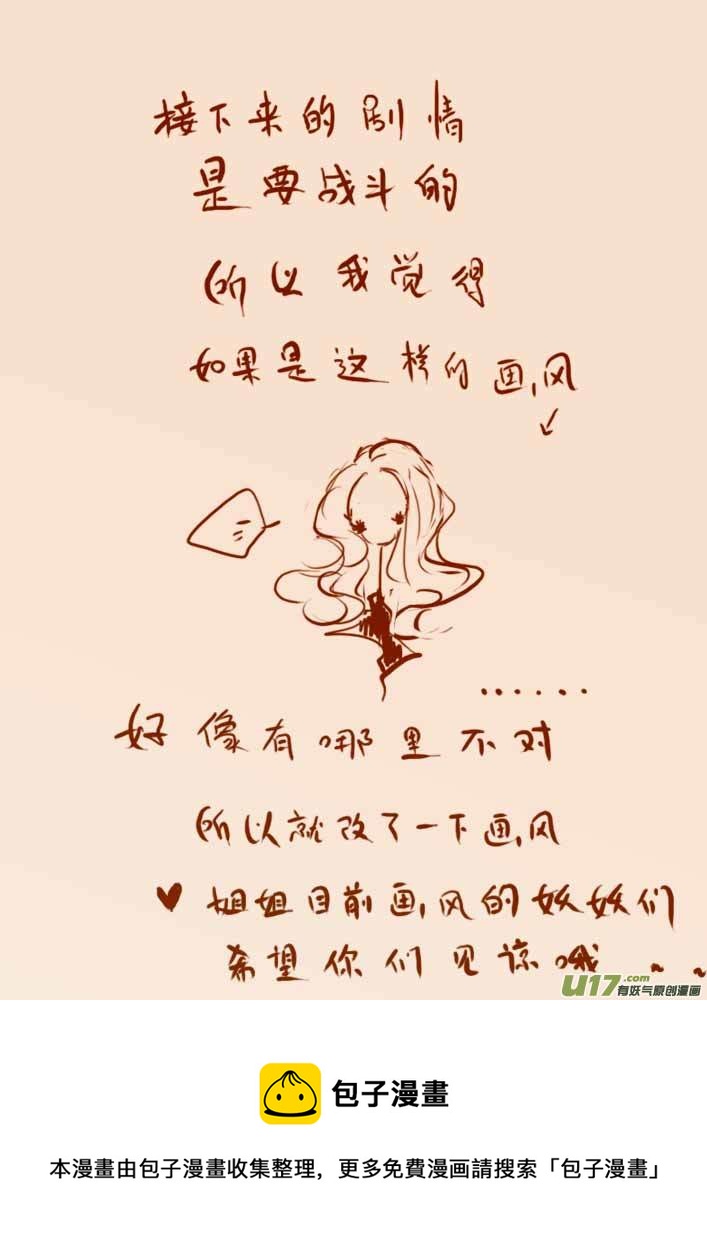 接下来的剧情
是要战斗的
所以我觉得
如果是这样的画风
......
好像有哪里不对
所以就改了一下画风
♥姐姐目前画风的妖妖们
希望你们见谅哦~~
U17.com
有妖气原创漫画
包子漫畫
本漫畫由包子漫畫收集整理，更多免費漫画請搜索「包子漫畫」